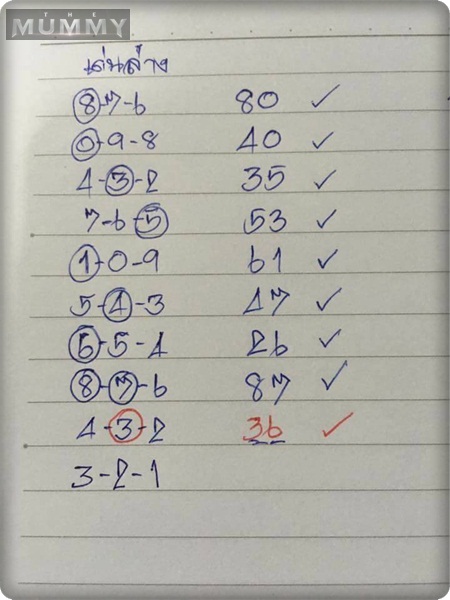 THE
MUMMY
เด่นล่าง
8-7-6 80 ✓
0-9-8 40 ✓
4-3-2 35 ✓
7-6-5 53 ✓
1-0-9 61 ✓
5-4-3 47 ✓
6-5-4 26 ✓
8-7-6 87 ✓
4-3-2 36 ✓
3-2-1